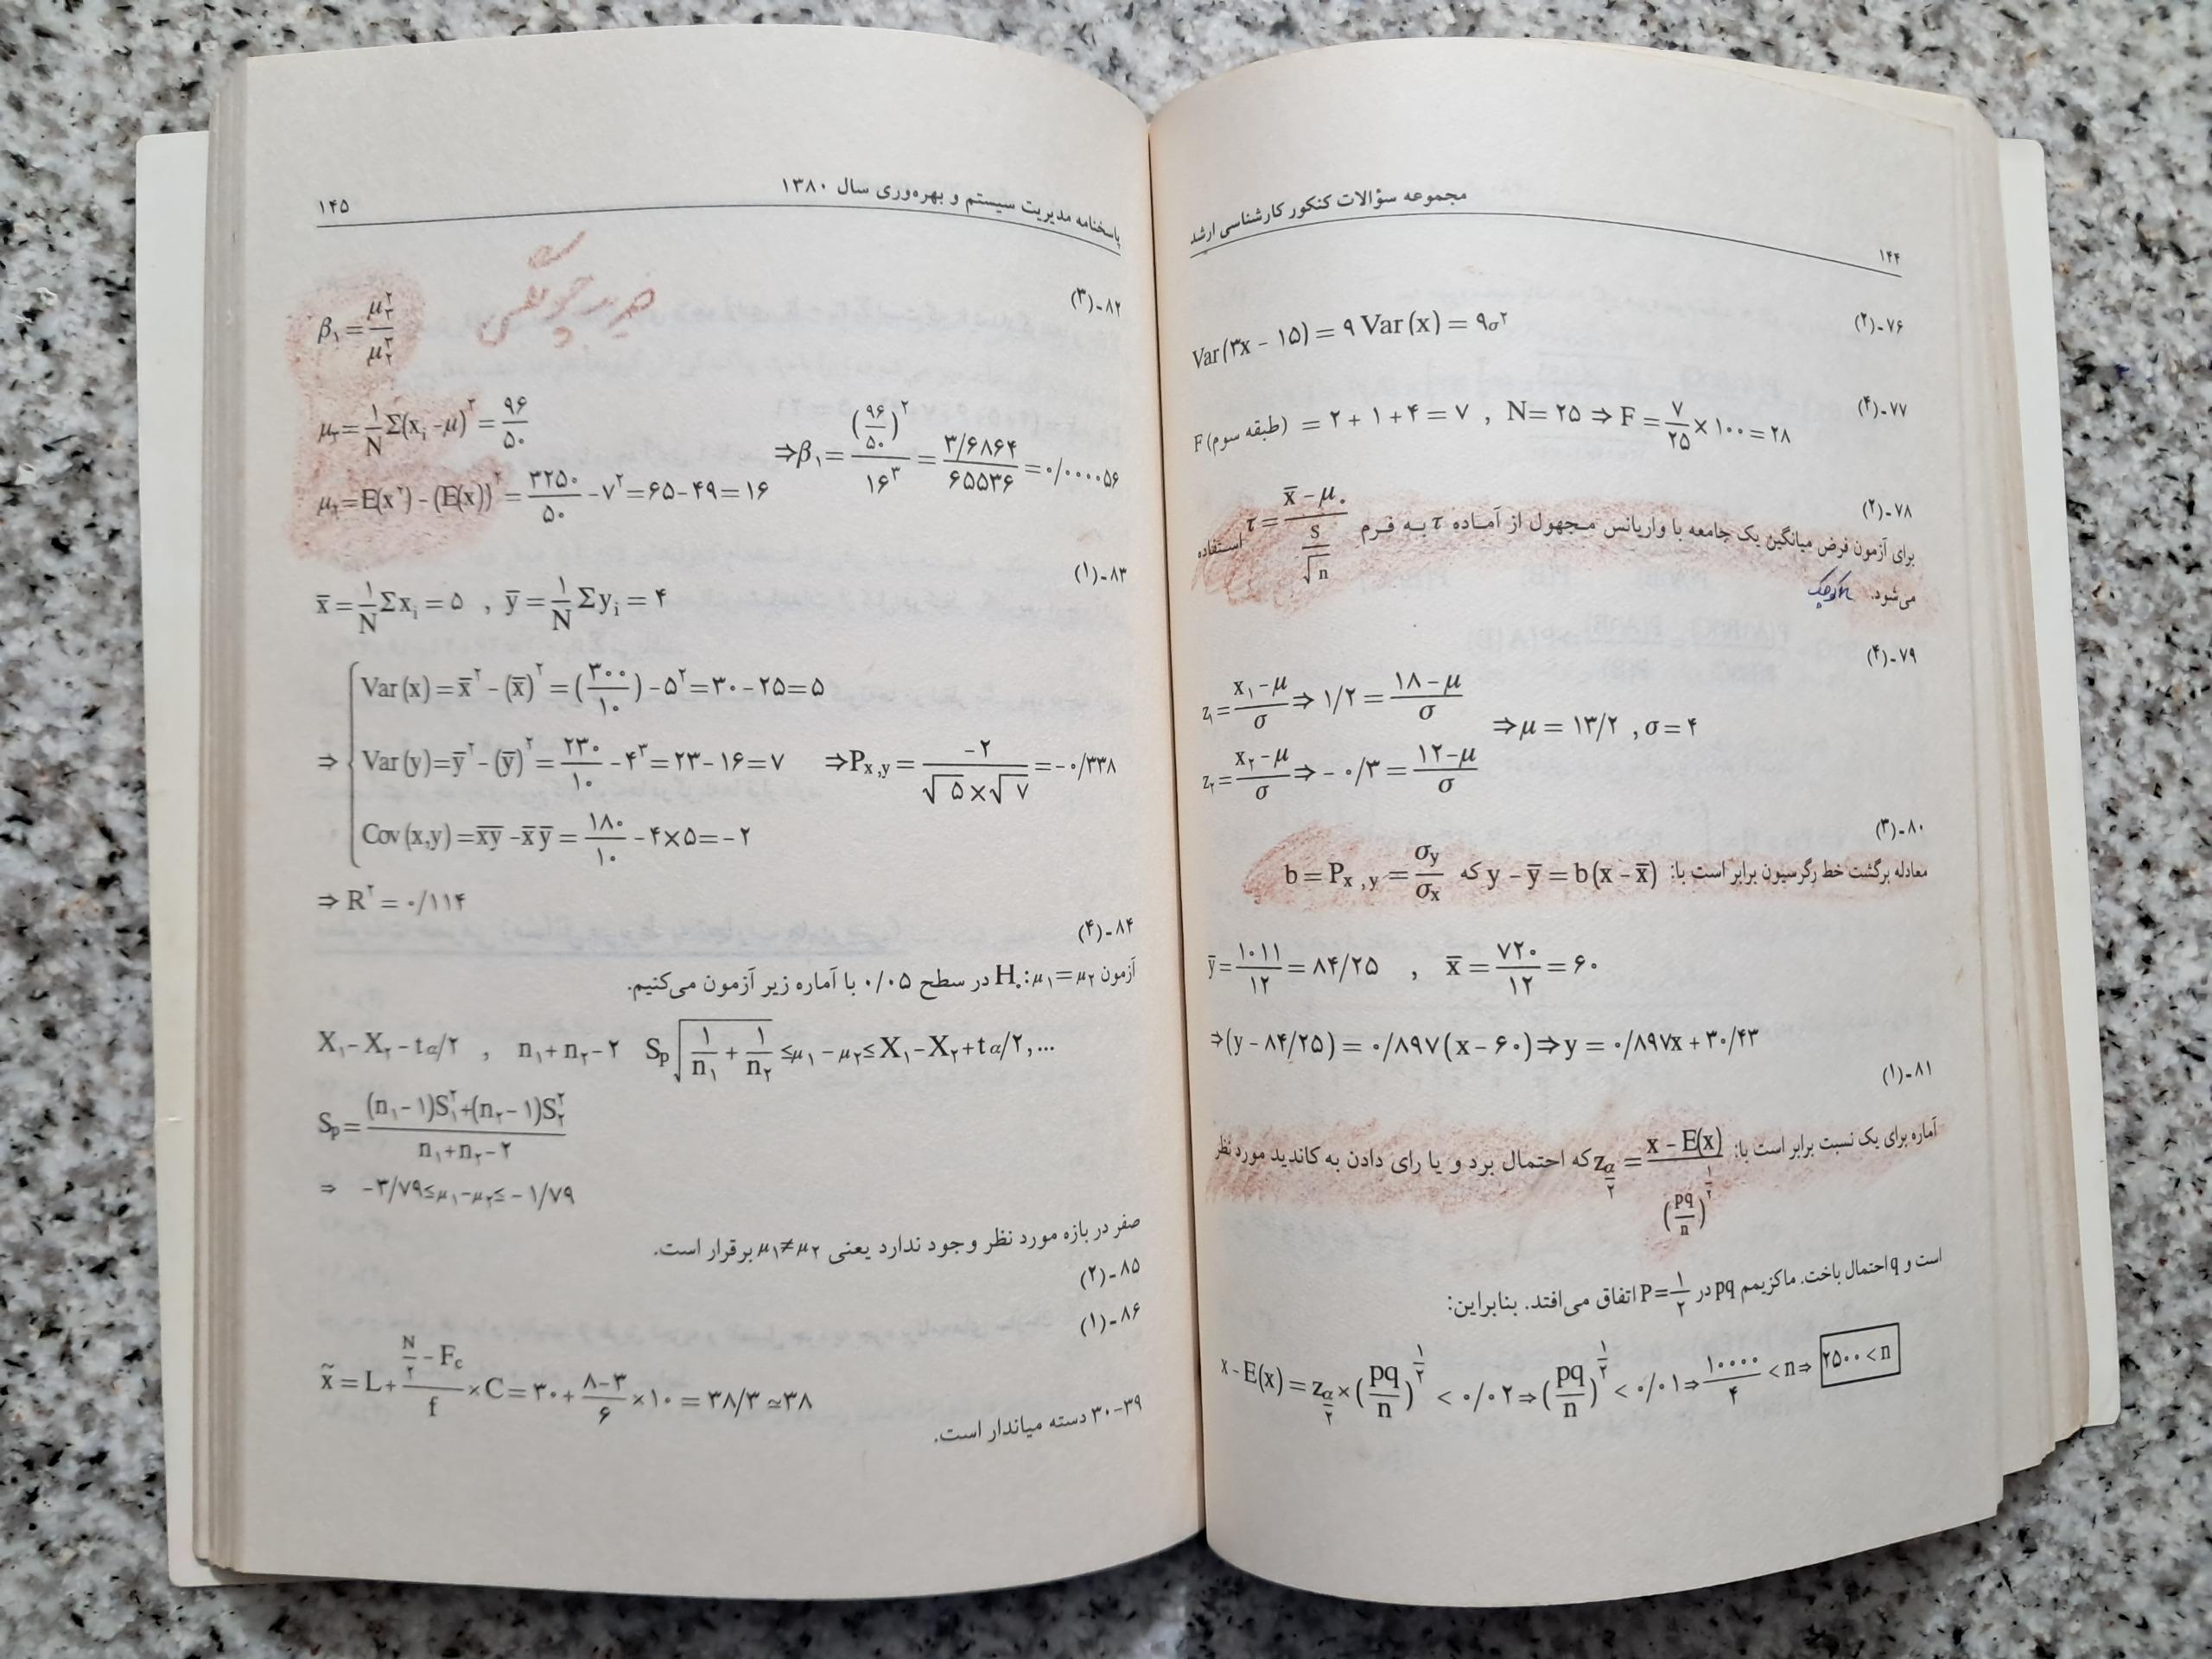 مجموعه سؤالات کنکور کارشناسی ارشد
۱۴۴
۷۶-(۲)
Var(۳x - ۱۵) = ۹ Var(x) = ۹σ^۲
۷۷-(۴)
F(طبقه سوم) = ۲ + ۱ + ۴ = ۷ , N= ۲۵ ⇒ F = ۷/۲۵ × ۱۰۰ = ۲۸
۷۸-(۲)
برای آزمون فرض میانگین یک جامعه با واریانس مجهول از آماده τ به فرم τ = (x̄ - μ۰)/(s/√n) استفاده
می‌شود. n کوچک
۷۹-(۴)
z۱ = (x۱ - μ)/σ ⇒ ۱/۲ = (۱۸ - μ)/σ
⇒ μ = ۱۳/۲ , σ = ۴
z۲ = (x۲ - μ)/σ ⇒ - ۰/۳ = (۱۲ - μ)/σ
۸۰-(۳)
معادله برگشت خط رگرسیون برابر است با: y - ȳ = b(x - x̄) که b = P x , y = σy/σx
ȳ = ۱۰۱۱/۱۲ = ۸۴/۲۵ , x̄ = ۷۲۰/۱۲ = ۶۰
⇒ (y - ۸۴/۲۵) = ۰/۸۹۷(x - ۶۰) ⇒ y = ۰/۸۹۷x + ۳۰/۴۳
۸۱-(۱)
آماره برای یک نسبت برابر است با: z α/۲ = (x - E(x))/(pq/n)^۱/۲ که احتمال برد و یا رای دادن به کاندید مورد نظر
است و q احتمال باخت. ماکزیمم pq در P = ۱/۲ اتفاق می‌افتد. بنابراین:
x - E(x) = z α/۲ × (pq/n)^۱/۲ < ۰/۰۲ ⇒ (pq/n)^۱/۲ < ۰/۰۱ ⇒ ۱۰۰۰۰/۴ < n ⇒ ۲۵۰۰ < n
پاسخنامه مدیریت سیستم و بهره‌وری سال ۱۳۸۰
۱۴۵
۸۲-(۳)
β۱ = μ۳^۲/μ۲^۳
μ۳ = ۱/N Σ(x i - μ)^۳ = ۹۶/۵۰
⇒ β۱ = (۹۶/۵۰)^۲/۱۶^۳ = ۳/۶۸۶۴/۶۵۵۳۶ = ۰/۰۰۰۰۵۶
μ۲ = E(x^۲) - (E(x))^۲ = ۳۲۵۰/۵۰ - ۷^۲ = ۶۵ - ۴۹ = ۱۶
۸۳-(۱)
x̄ = ۱/N Σx i = ۵ , ȳ = ۱/N Σy i = ۴
Var(x) = x̄^۲ - (x̄)^۲ = (۳۰۰/۱۰) - ۵^۲ = ۳۰ - ۲۵ = ۵
⇒ Var(y) = ȳ^۲ - (ȳ)^۲ = ۲۳۰/۱۰ - ۴^۳ = ۲۳ - ۱۶ = ۷ ⇒ P x ,y = -۲/(√۵ × √۷) = -۰/۳۳۸
Cov(x,y) = x̄ȳ - x̄ ȳ = ۱۸۰/۱۰ - ۴×۵ = -۲
⇒ R^۲ = ۰/۱۱۴
۸۴-(۴)
آزمون H۰: μ۱ = μ۲ در سطح ۰/۰۵ با آماره زیر آزمون می‌کنیم.
X۱ - X۲ - t α/۲ , n۱ + n۲ - ۲ Sp √(۱/n۱ + ۱/n۲) ≤ μ۱ - μ۲ ≤ X۱ - X۲ + t α/۲ , ...
Sp = ((n۱ - ۱)S۱^۲ + (n۲ - ۱)S۲^۲)/(n۱ + n۲ - ۲)
⇒ -۳/۷۹ ≤ μ۱ - μ۲ ≤ -۱/۷۹
صفر در بازه مورد نظر وجود ندارد یعنی μ۱ ≠ μ۲ برقرار است.
۸۵-(۲)
۸۶-(۱)
x̃ = L + (N/۲ - Fc)/f × C = ۳۰ + (۸ - ۳)/۶ × ۱۰ = ۳۸/۳ ≃ ۳۸
۳۰-۳۹ دسته میاندار است.